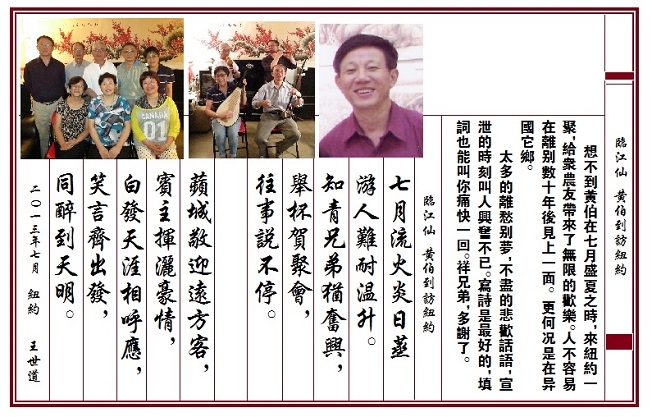 臨江仙 黃伯到訪紐約
想不到黃伯在七月盛夏之時，來紐約一
聚，給衆農友帶來了無限的歡樂。人不容易
在離別數十年後見上一面。更何况是在异
國它鄉。
太多的離愁别夢，不盡的悲歡話語，宣
泄的時刻叫人興奮不已。寫詩是最好的，填
詞也能叫你痛快一回。祥兄弟，多謝了。
臨江仙 黃伯到訪紐約
七月流火炎日蒸
游人難耐温升。
知青兄弟猶奮興，
舉杯賀聚會，
往事説不停。
蘋城敬迎遠方客，
賓主揮灑豪情，
白發天涯相呼應，
笑言齊出發，
同醉到天明。
二〇一三年七月 紐約 王世道
CANADA
01